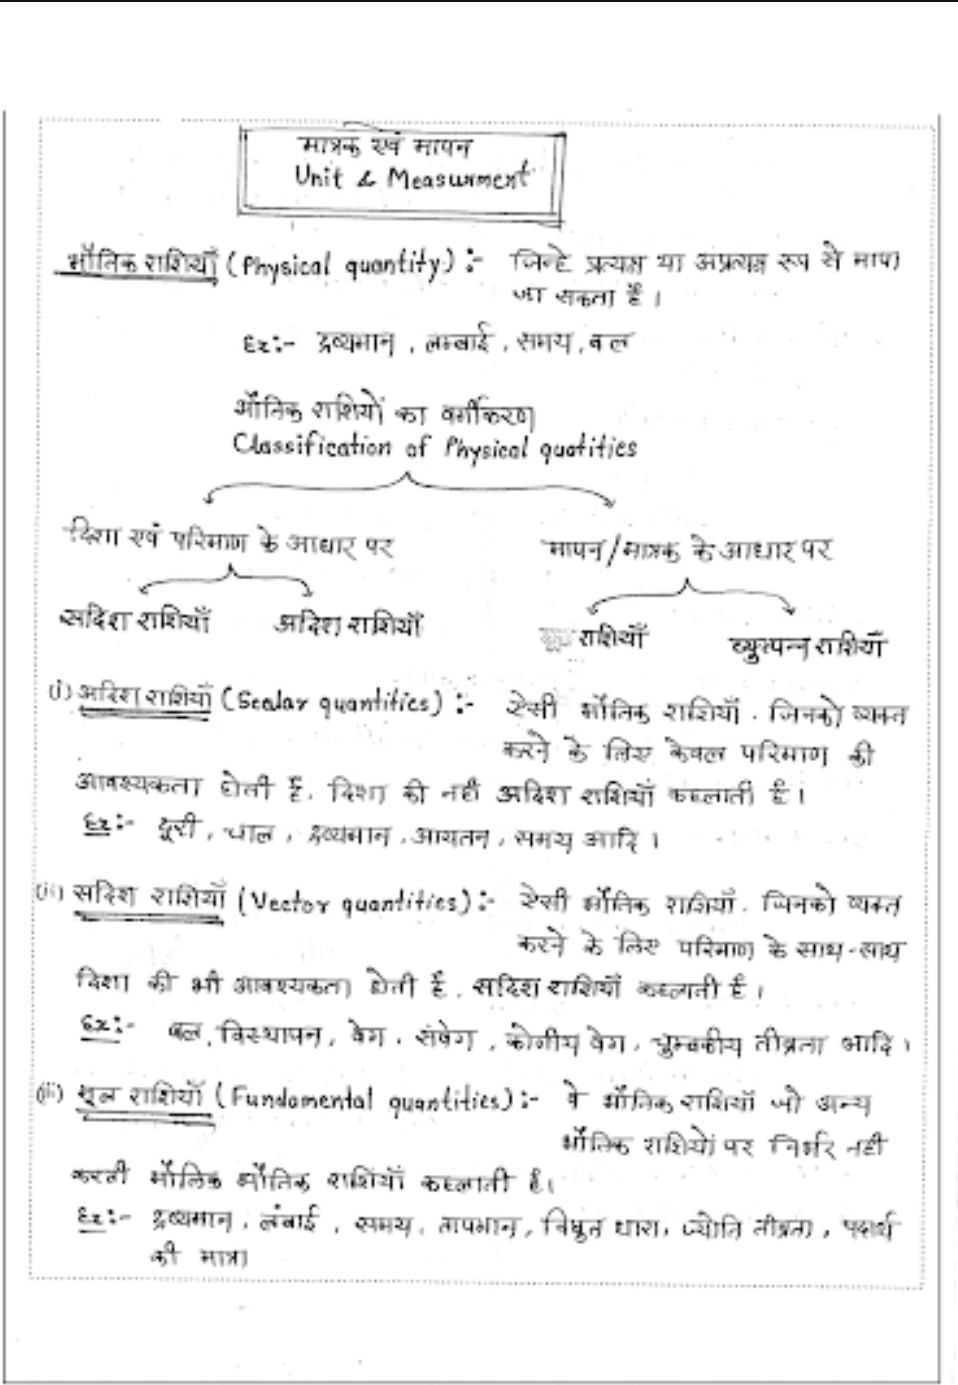 मात्रक एवं मापन
Unit & Measurment
भौतिक राशियाँ (Physical quantity) :- जिन्हे प्रत्यक्ष या अप्रत्यक्ष रूप से मापा
जा सकता है।
Ex:- द्रव्यमान, लम्बाई, समय, बल
भौतिक राशियों का वर्गीकरण
Classification of Physical quatities
दिशा एवं परिमाण के आधार पर
मापन/मात्रक के आधार पर
सदिश राशियाँ अदिश राशियाँ
मूल राशियाँ व्युत्पन्न राशियाँ
(i) अदिश राशियाँ (Scalar quantities) :- ऐसी भौतिक राशियाँ, जिनको व्यक्त
करने के लिए केवल परिमाण की
आवश्यकता होती है, दिशा की नही अदिश राशियाँ कहलाती है।
Ex:- दूरी, चाल, द्रव्यमान, आयतन, समय आदि।
(ii) सदिश राशियाँ (Vector quantities) :- ऐसी भौतिक राशियाँ, जिनको व्यक्त
करने के लिए परिमाण के साथ-साथ
दिशा की भी आवश्यकता होती है, सदिश राशियाँ कहलाती है।
Ex:- बल, विस्थापन, वेग, संवेग, कोणीय वेग, चुम्बकीय तीव्रता आदि।
(iii) मूल राशियाँ (Fundamental quantities) :- वे भौतिक राशियाँ जो अन्य
भौतिक राशियों पर निर्भर नही
करती मौलिक भौतिक राशियाँ कहलाती है।
Ex:- द्रव्यमान, लंबाई, समय, तापमान, विधुत धारा, ज्योति तीव्रता, पदार्थ
की मात्रा